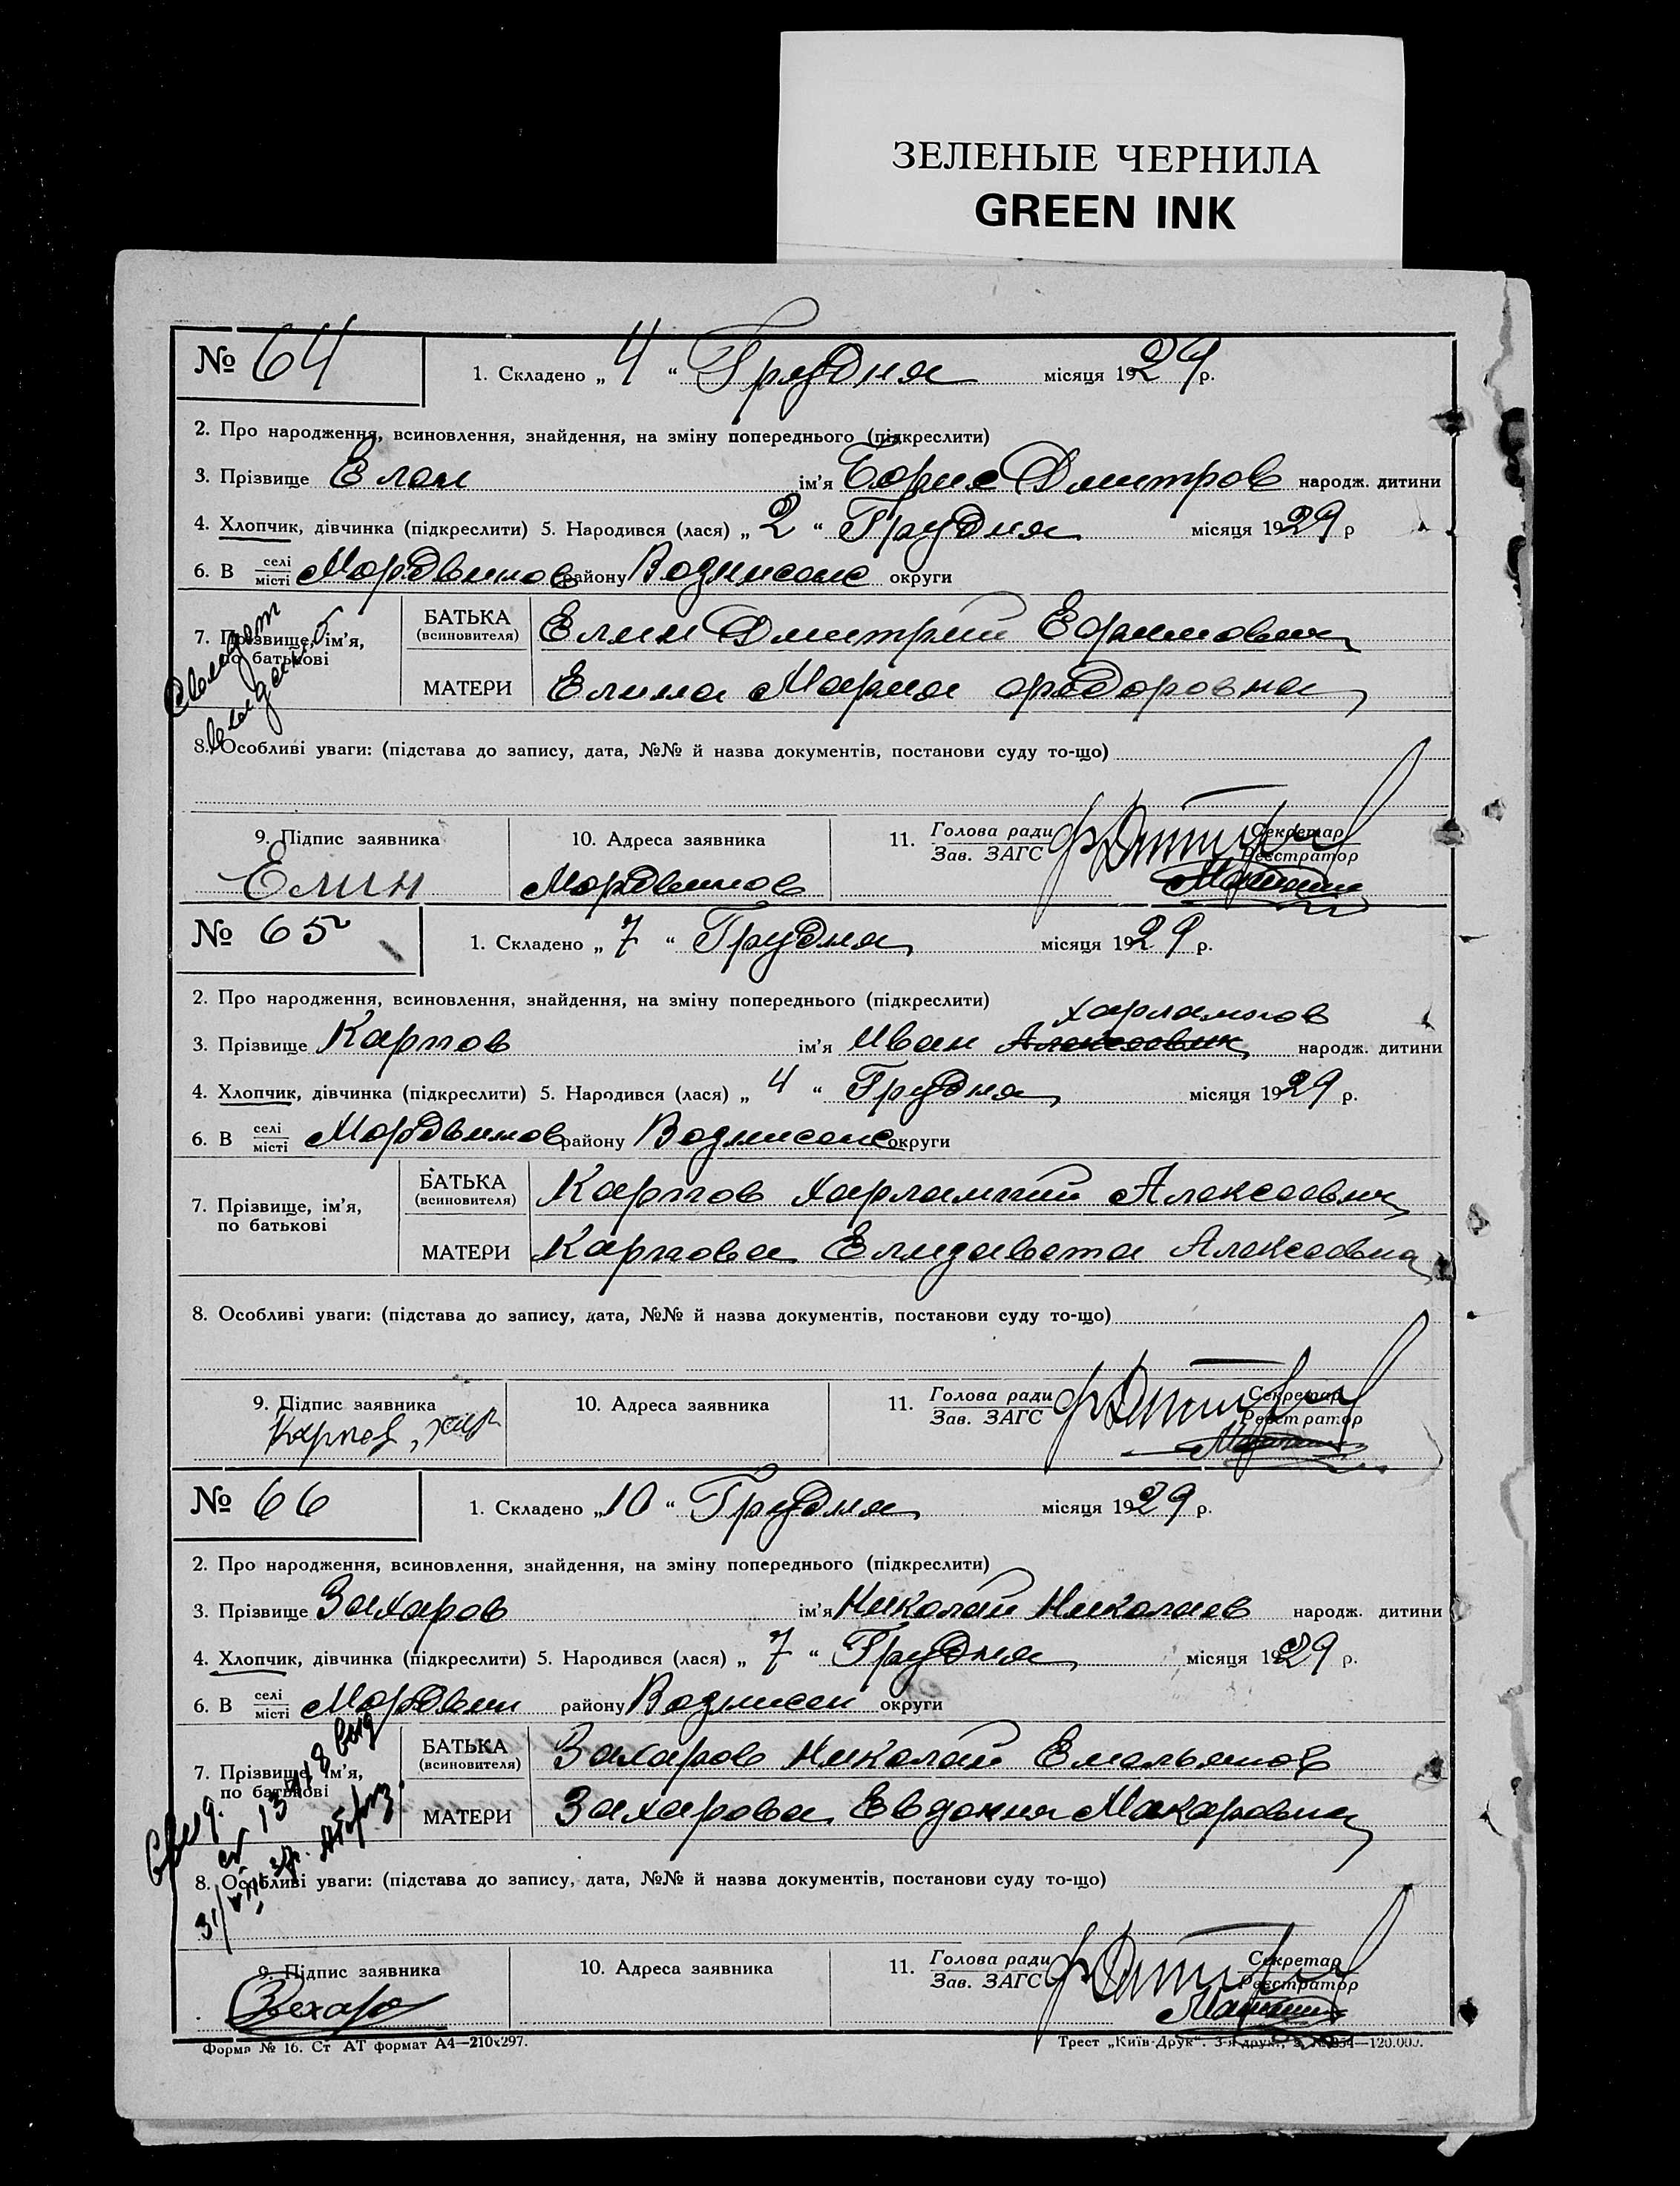 ЗЕЛЕНЫЕ ЧЕРНИЛА
GREEN INK
№ 64
1. Складено „ 4 “ Грудня місяця 1929 р.
2. Про народження, всиновлення, знайдення, на зміну попереднього (підкреслити)
3. Прізвище Елин ім’я Борис Дмитров народж. дитини
4. Хлопчик, дівчинка (підкреслити) 5. Народився (лася) „ 2 “ Грудня місяця 1929 р
6. В селі місті Мордвинов району Вознисенс округи
7. Прізвище, ім’я, по батькові
БАТЬКА (всиновителя) Елин Дмитрий Ефимович
МАТЕРИ Елина Мария Федоровна
8. Особливі уваги: (підстава до запису, дата, №№ й назва документів, постанови суду то-що)
9. Підпис заявника 10. Адреса заявника 11. Голова ради Зав. ЗАГС Секретар Реєстратор
Елин Мордвинов
№ 65
1. Складено „ 7 “ Грудня місяця 1929 р.
2. Про народження, всиновлення, знайдення, на зміну попереднього (підкреслити)
Харлампов
3. Прізвище Карпов ім’я Иван Алексеевич народж. дитини
4. Хлопчик, дівчинка (підкреслити) 5. Народився (лася) „ 4 “ Грудня місяця 1929 р.
6. В селі місті Мордвинов району Вознисенс округи
7. Прізвище, ім’я, по батькові
БАТЬКА (всиновителя) Карпов Харлампий Алексеевич
МАТЕРИ Карпова Елизавета Алексеевна
8. Особливі уваги: (підстава до запису, дата, №№ й назва документів, постанови суду то-що)
9. Підпис заявника 10. Адреса заявника 11. Голова ради Зав. ЗАГС Секретар Реєстратор
Карпов, хар
№ 66
1. Складено „ 10 “ Грудня місяця 1929 р.
2. Про народження, всиновлення, знайдення, на зміну попереднього (підкреслити)
3. Прізвище Захаров ім’я Николай Николаев народж. дитини
4. Хлопчик, дівчинка (підкреслити) 5. Народився (лася) „ 7 “ Грудня місяця 1929 р.
6. В селі місті Мордвин району Вознисен округи
7. Прізвище, ім’я, по батькові
БАТЬКА (всиновителя) Захаров Николай Емельянов
МАТЕРИ Захарова Евдокия Макаровна
8. Особливі уваги: (підстава до запису, дата, №№ й назва документів, постанови суду то-що)
9. Підпис заявника 10. Адреса заявника 11. Голова ради Зав. ЗАГС Секретар Реєстратор
Захаро
Форма № 16. Ст АТ формат А4—210х297.
Трест „Київ-Друк“. 3-я друк.